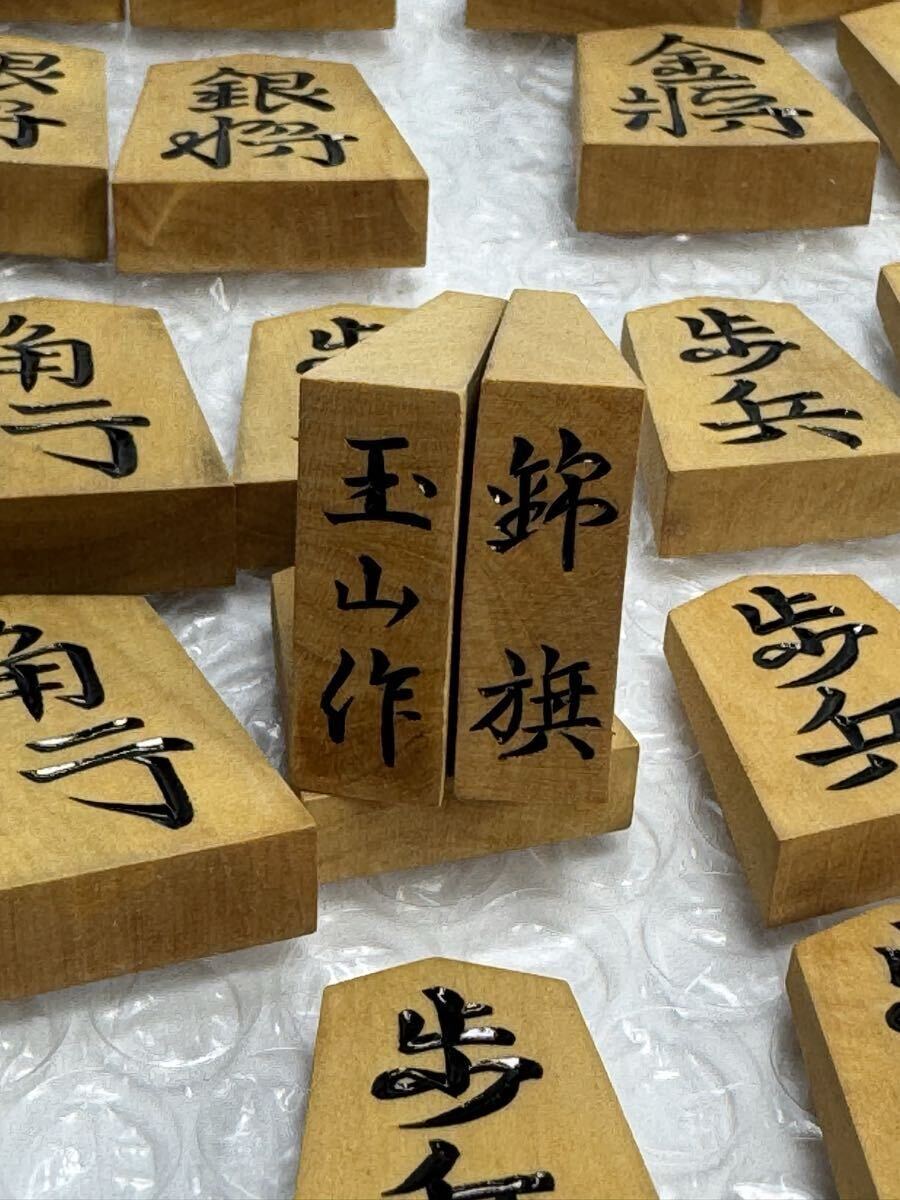 銀将
銀将
金将
角行
歩
歩兵
玉山作
錦旗
角行
歩兵
歩兵